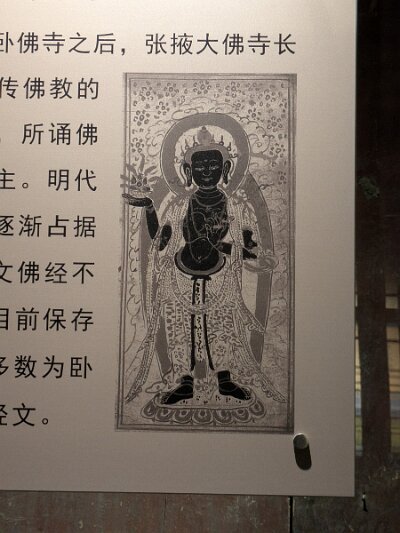 卧佛寺之后，张掖大佛寺长
传佛教的
，所诵佛
主。明代
逐渐占据
文佛经不
目前保存
多数为卧
经文。